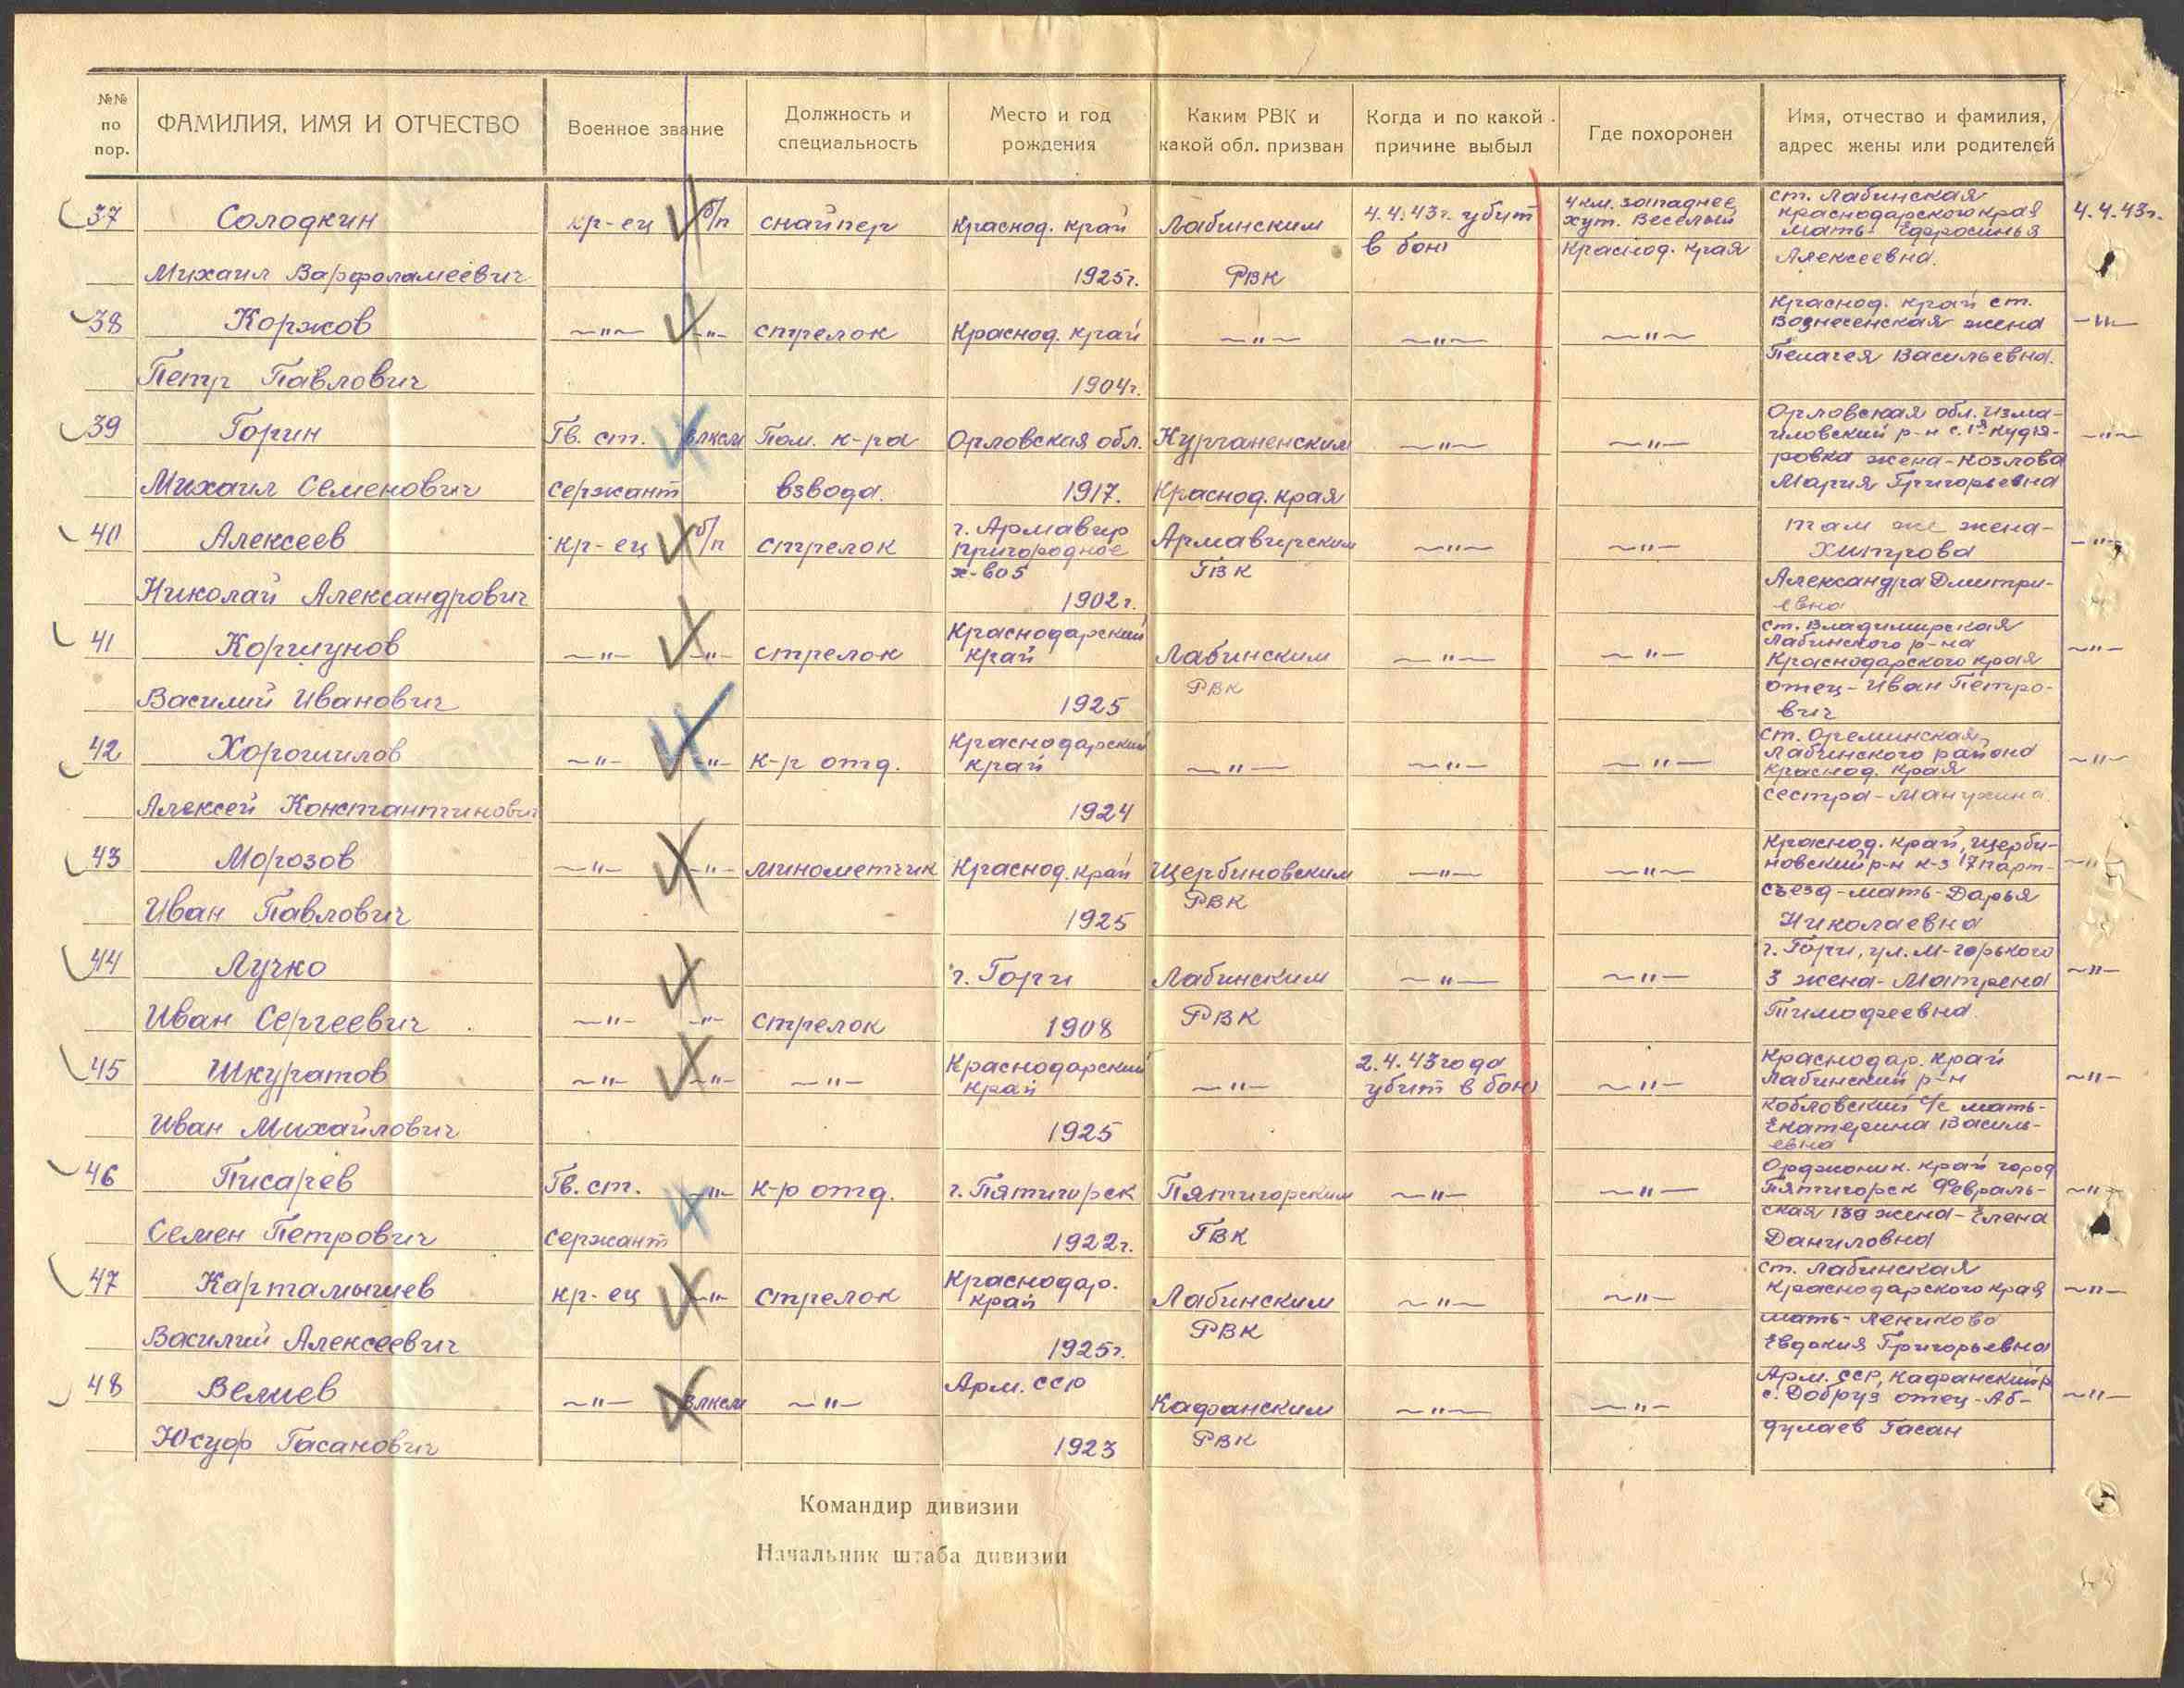 №№ по пор.
ФАМИЛИЯ, ИМЯ И ОТЧЕСТВО
Военное звание
Должность и специальность
Место и год рождения
Каким РВК и какой обл. призван
Когда и по какой причине выбыл
Где похоронен
Имя, отчество и фамилия, адрес жены или родителей
37 Солодкин кр-ец б/п снайпер Краснод. край Лабинским 4.4.43г. убит 4 км. западнее ст. Лабинская 4.4.43г.
хут. Веселый Краснодарского края
в бою Краснод. края мать- Ефросинья
Михаил Варфоламеевич 1925г. РВК Алексеевна.
38 Коржов —"— —"— стрелок Краснод. край —"— —"— —"— Краснод. край ст. —"—
Вознесенская жена
Петр Павлович 1904г. Пелагея Васильевна.
39 Горин Гв. ст. ВЛКСМ Пом. к-ра Орловская обл. Курганенским —"— —"— Орловская обл. Изма- —"—
иловский р-н с. 1я Кудя-
ровка жена-Козлова
Михаил Семенович сержант взвода. 1917. Краснод. края Мария Григорьевна
40 Алексеев кр-ец б/п стрелок г. Армавир Армавирским —"— —"— там же жена- —"—
пригородное Хитрова
х-во 5 ГВК
Николай Александрович 1902г. Александра Дмитри-
евна
41 Коршунов —"— —"— стрелок Краснодарский Лабинским —"— —"— ст. Владимирская —"—
край Лабинского р-на
РВК Краснодарского края
Василий Иванович 1925 отец-Иван Петро-
вич
42 Хорошилов —"— —"— к-р отд. Краснодарский —"— —"— —"— —"—
край Лабинского района
Краснод. края
Алексей Константинович 1924 сестра-Манухина.
43 Морозов —"— —"— минометчик Краснод. край Щербиновским —"— —"— Краснод. край, Щерби- —"—
новский р-н к-з 17 парт-
РВК съезд-мать-Дарья
Иван Павлович 1925 Николаевна
44 Лучко г. Гори Лабинским —"— —"— г. Гори, ул. М-Горького —"—
3 жена-Матрена
Иван Сергеевич —"— —"— стрелок 1908 РВК Тимофеевна.
45 Шкуратов —"— —"— —"— Краснодарский —"— 2.4.43 года —"— Краснодар. край —"—
край убит в бою Лабинский р-н
с/с мать-
Иван Михайлович 1925 Екатерина Василь-
евна
46 Писарев Гв. ст. —"— к-р отд. г. Пятигорск Пятигорским —"— —"— Орджоник. край город —"—
Пятигорск Февраль-
ская 139 жена-Елена
Семен Петрович сержант 1922г. ГВК Даниловна
47 Картамышев кр-ец —"— стрелок Краснодар. Лабинским —"— —"— ст. Лабинская —"—
край Краснодарского края
РВК мать-
Василий Алексеевич 1925г. Евдокия Григорьевна
48 Велиев —"— ВЛКСМ —"— Арм. ССР Кафанским —"— —"— Арм. ССР, Кафанский р —"—
с. Добруз, отец-Аб-
Юсуф Гасанович 1923 РВК дулаев Гасан
Командир дивизии
Начальник штаба дивизии